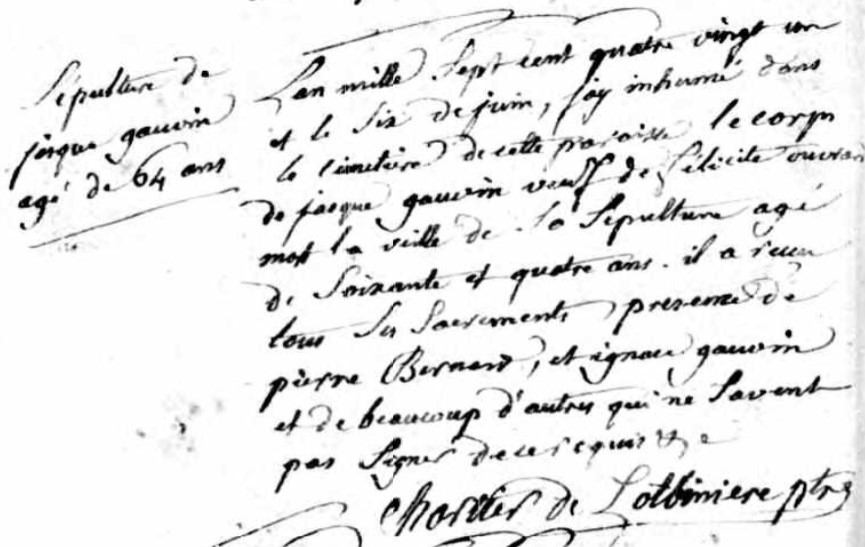 Sépulture de
jaque gauvin
agé de 64 ans
Lan mille Sept cent quatre vingt un
et le Six de juin, jay inhumé dans
le Cimetiere de cette paroisse le corps
de jaque gauvin veuf de félicité ouvrard
mort la veille de Sa Sepulture agé
de Soixante et quatre ans. il a recu
tous Ses Sacrements presence de
pierre Bernard, et ignace gauvin
et de beaucoup d'autres qui ne Savent
pas Signer de ce requis
Chartier de Lotbiniere ptre